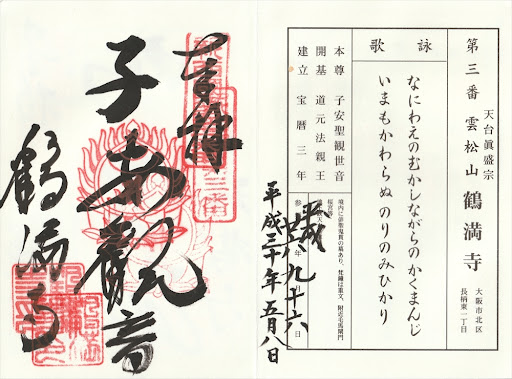 第三番
天台眞盛宗
雲松山
鶴満寺
大阪市北区
長柄東一丁目
詠歌
なにわえのむかしながらのかくまんじ
いまもかわらぬのりのみひかり
本尊 子安聖観世音
開基 道元法親王
建立 宝暦三年
境内に俳歌鬼貫の墓あり、梵鐘は重文、附近毛馬閘門
桜宮等
平成三十年五月八日
奉拝
子安観音
鶴満寺